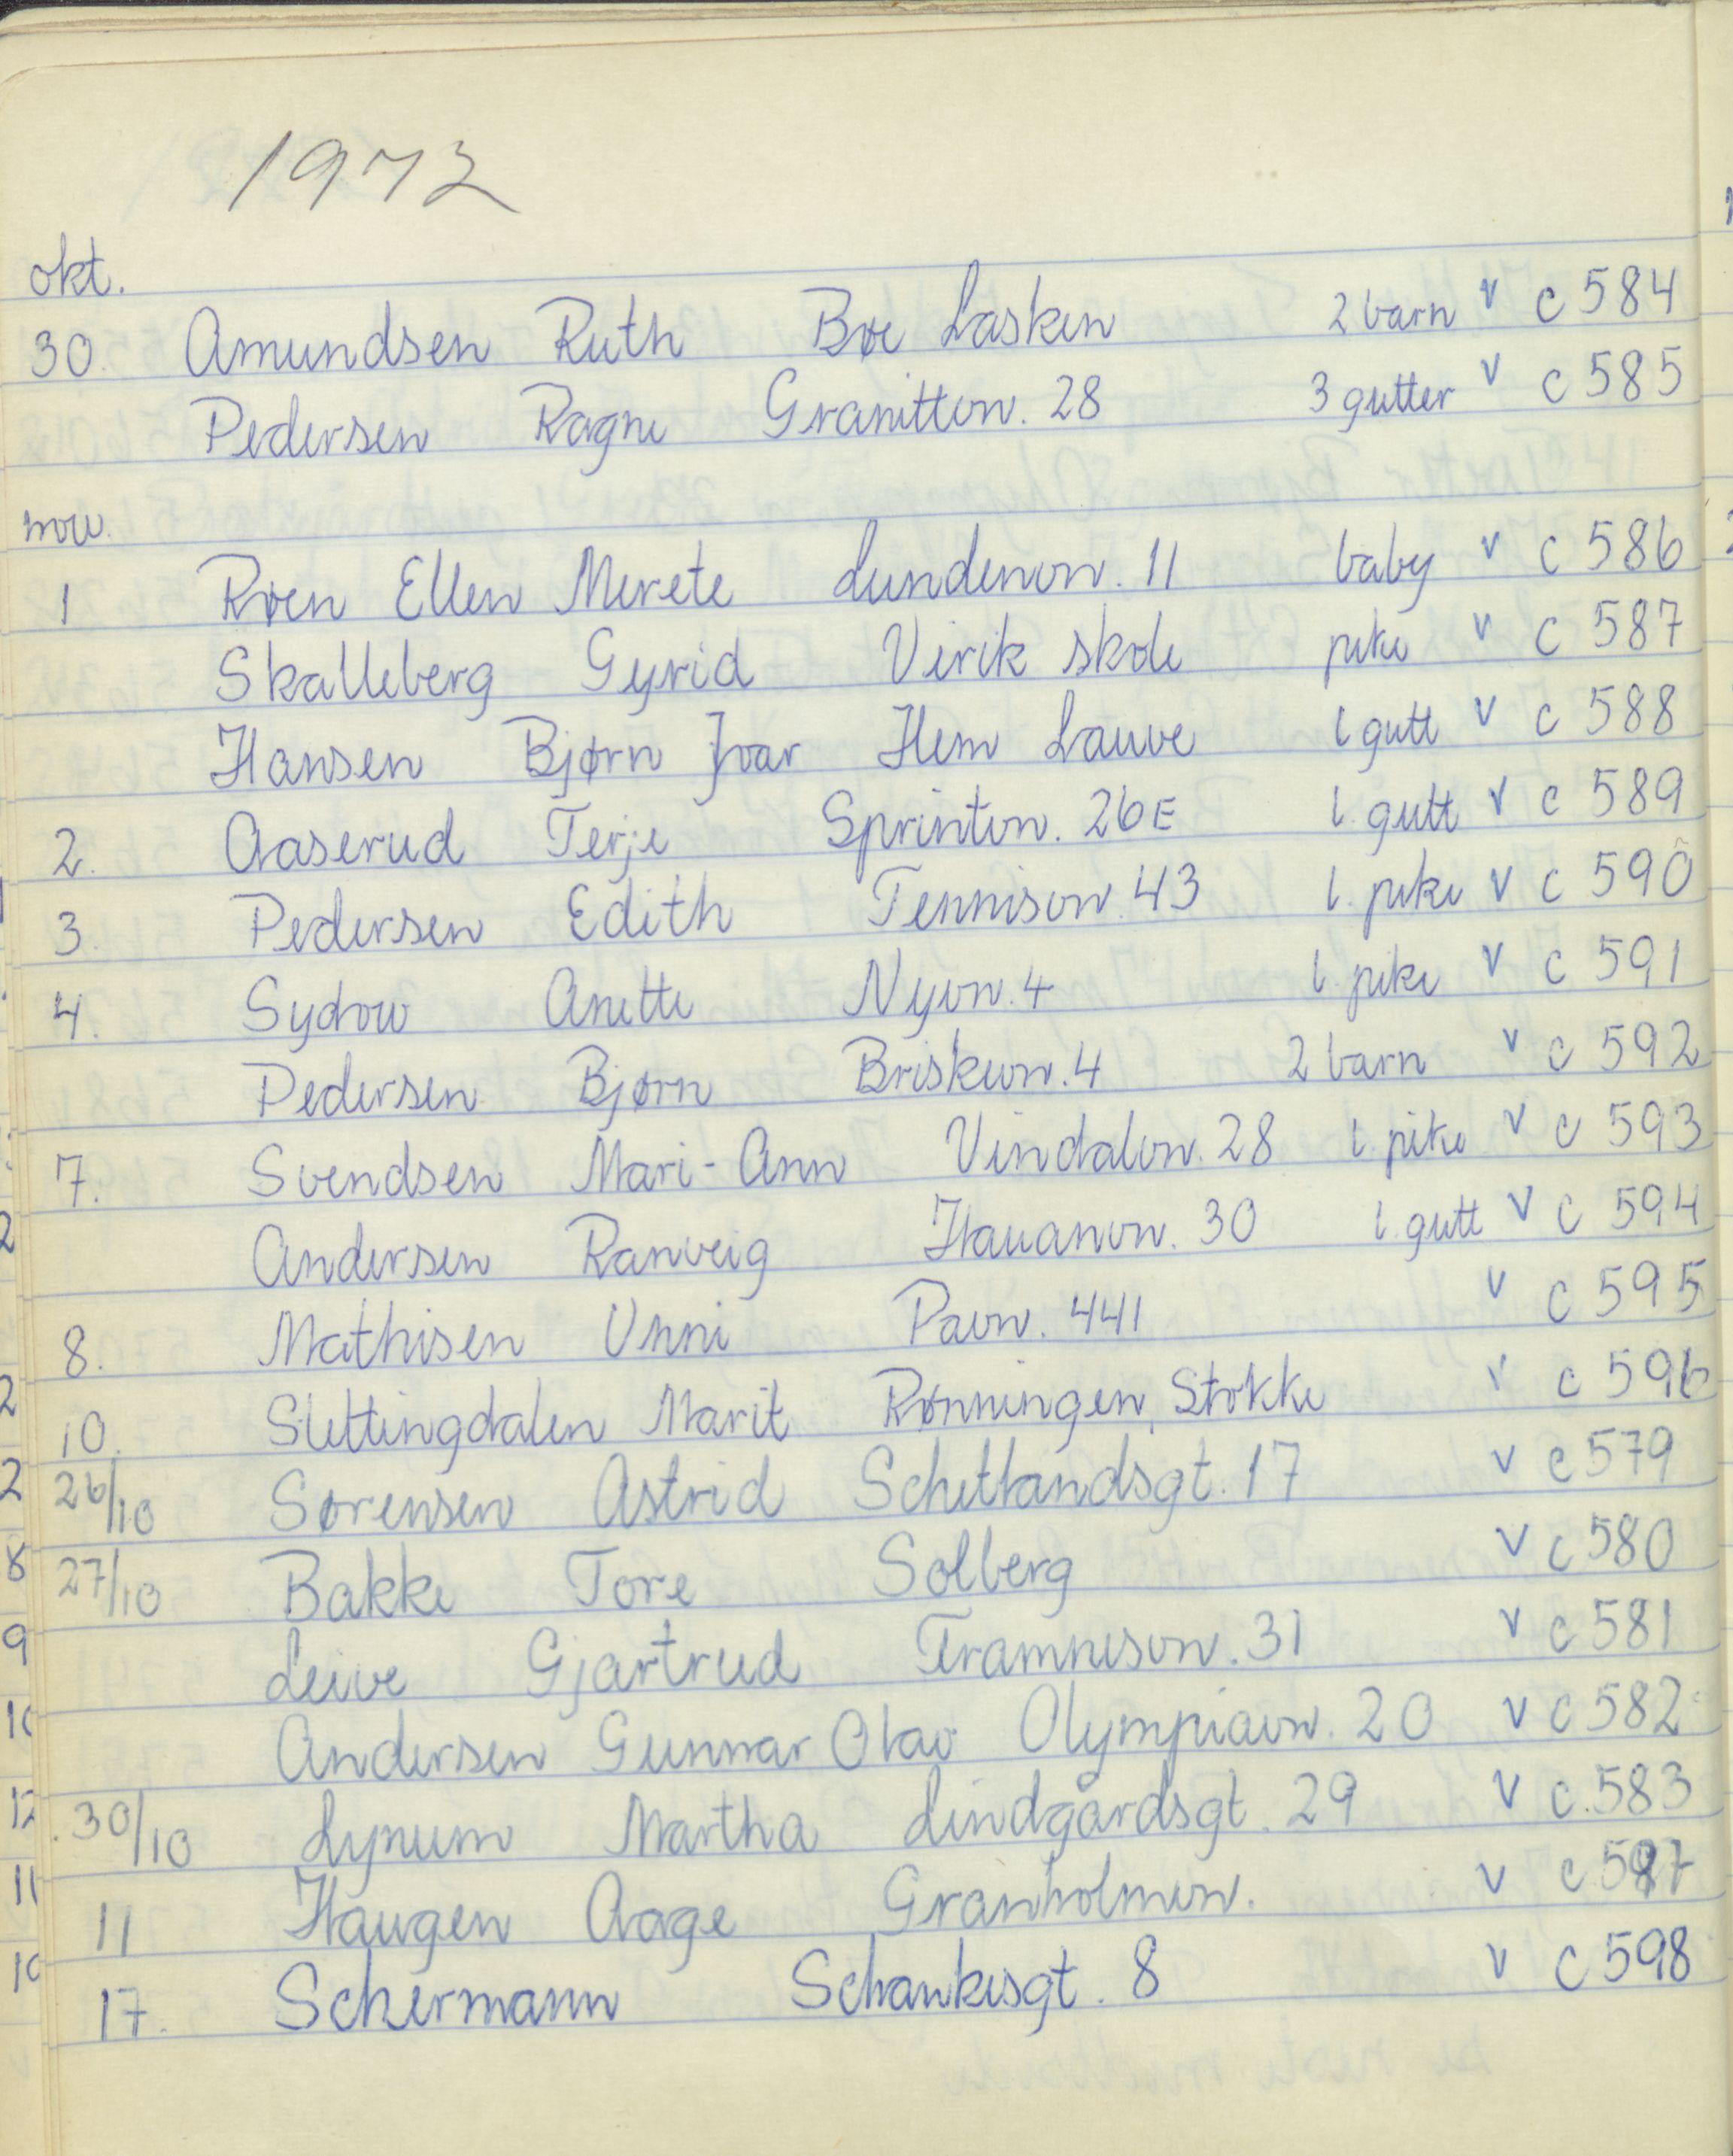 1972
okt.
30. Amundsen Ruth Bøe Lasken 2 barn v c 584
Pedersen Ragne Granittvn. 28 3 gutter v c 585
nov.
1 Røen Ellen Merete Lundenvn. 11 baby v c 586
Skalleberg Gyrid Virik skole pike v c 587
Hansen Bjørn Ivar Hem Lauve 1 gutt v c 588
2. Aaserud Terje Sprintvn. 26E 1. gutt v c 589
3. Pedersen Edith Tennisvn. 43 1. pike v c 590
4. Sydow Anette Nyvn. 4 1. pike v c 591
Pedersen Bjørn Briskevn. 4 2 barn v c 592
7. Svendsen Mari-Ann Vindalvn. 28 1. pike v c 593
Andersen Ranveig Hauanvn. 30 1. gutt v c 594
8. Mathisen Unni Pavn. 441 v c 595
10. Slettingdalen Marit Rønningen, Stokke v c 596
26/10 Sørensen Astrid Schetlandsgt. 17 v c 579
27/10 Bakke Tore Solberg v c 580
Leive Gjartrud Framnesvn. 31 v c 581
Andersen Gunnar Olav Olympiavn. 20 v c 582
30/10 Lynum Martha Lindgårdsgt. 29 v c. 583
11 Haugen Aage Granholmen. v c 597
17. Schermann Schankesgt. 8 v c 598